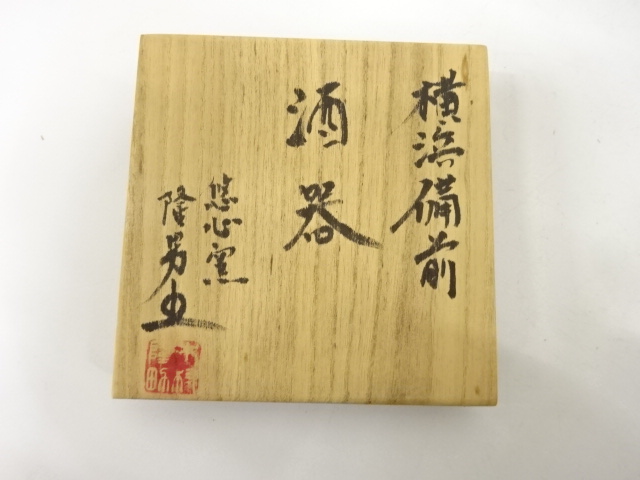 横浜備前
酒器
悠心窯
隆男